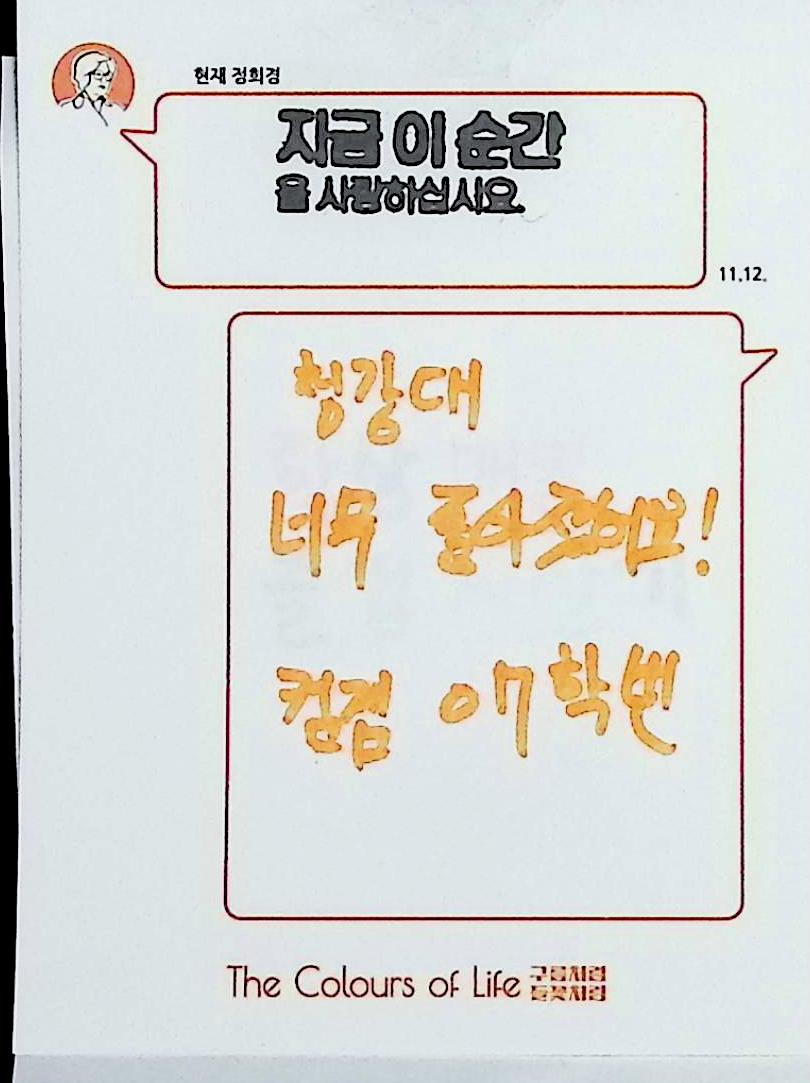 현재 정희경
지금 이 순간
을 사랑하십시요.
11.12.
청강대
너무 좋아졌어요!
컴겜 07학번
The Colours of Life 구름처럼
들꽃처럼